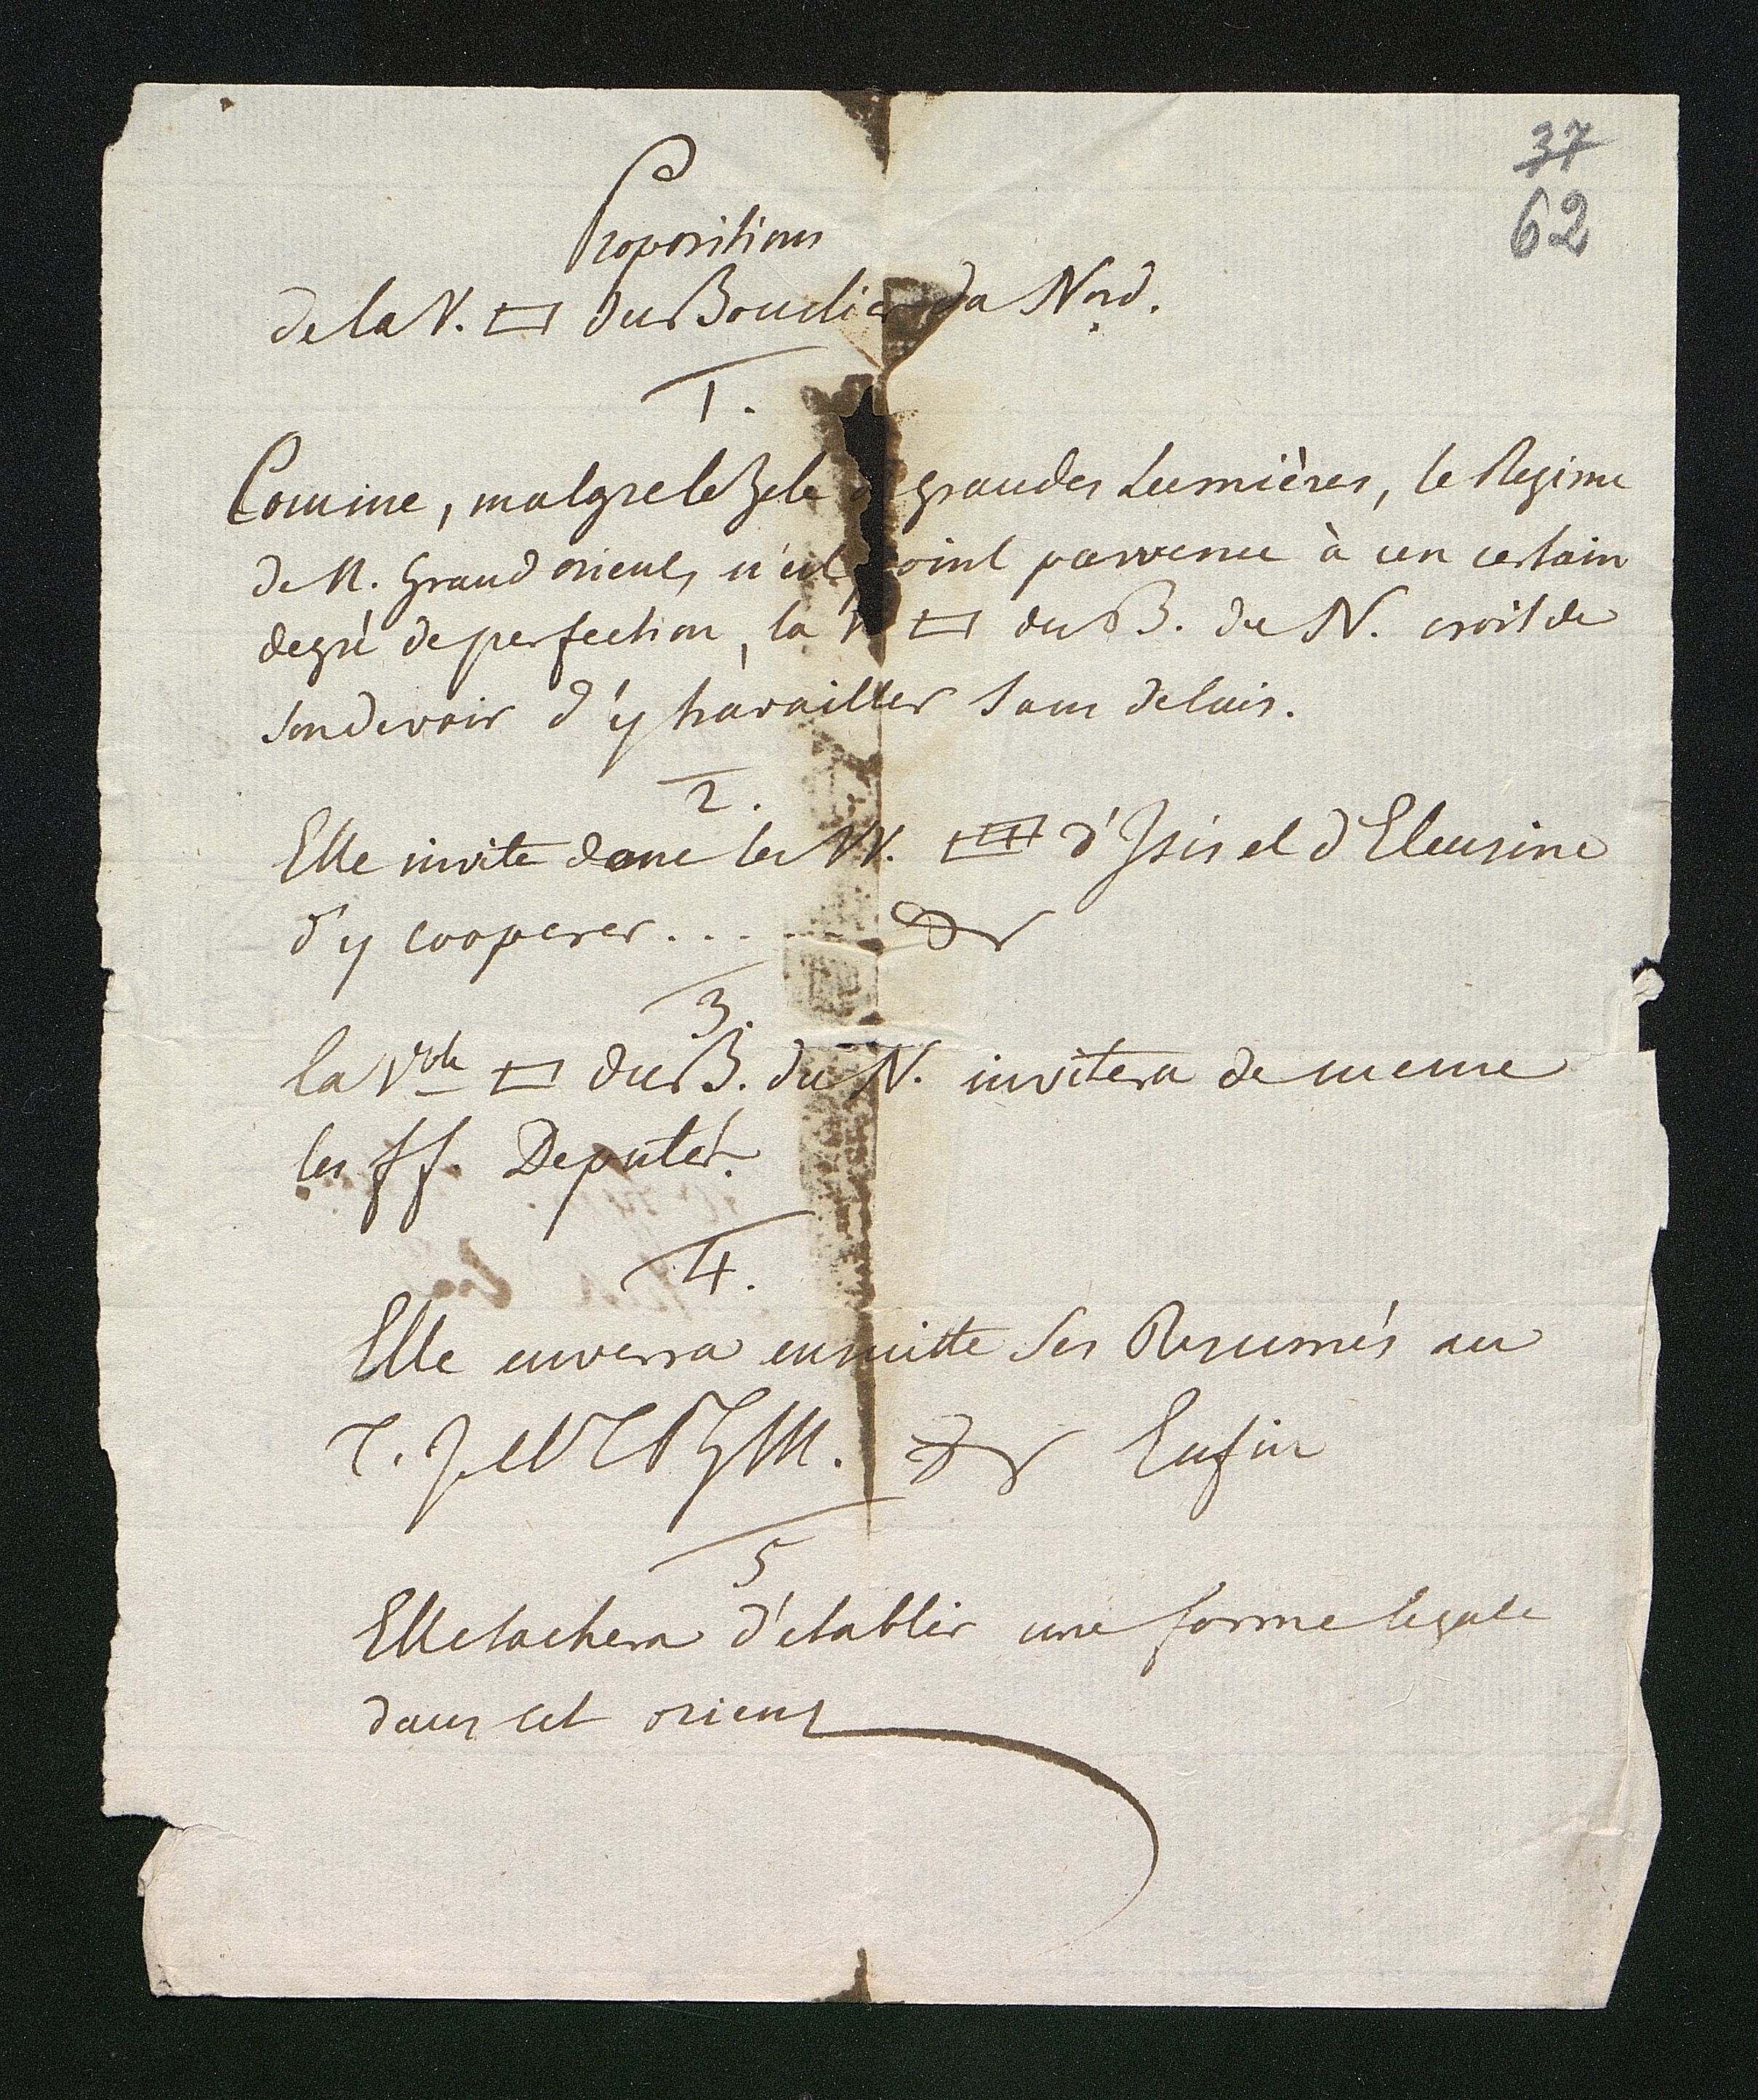 37
62
Propositions
de la V. □ du Bouclier du Nord.
1.
Comme, malgre le Zele grandes Lumières, le Regime
de N. Grand orient, n'est point parvenu à un certain
degré de perfection, la V □ du B. du N. croit de
son devoir d'y travailler sans delais.
2.
Elle invite donc les VV. d'Isis et d'Eleusine
d'y cooperer....
3.
la Vble □ du B. du N. invitera de meme
les ff. Deputés.
4.
Elle enverra ensuitte ses Resumés au
Enfin
5
Elle tachera d'etablir une forme legale
dans cet orient